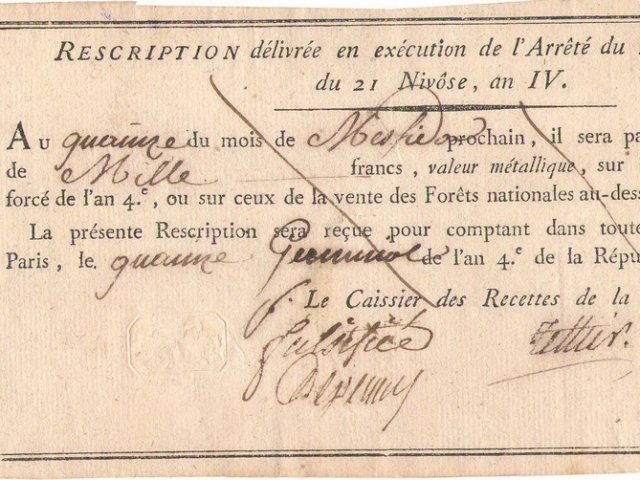 RESCRIPTION délivrée en exécution de l'Arrêté du
du 21 Nivôse, an IV.
AU quinze du mois de Messidor prochain, il sera pa
de Mille francs, valeur métallique, sur
forcé de l'an 4.e, ou sur ceux de la vente des Forêts nationales au-dess
La présente Rescription sera reçue pour comptant dans toute
Paris, le quinze Germinal de l'an 4.e de la Répu
Le Caissier des Recettes de la
falsifiée